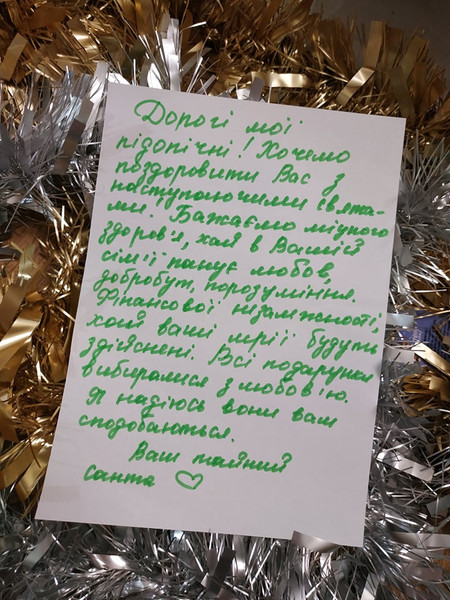 Дорогі мої
підопічні! Хочемо
поздоровити Вас з
наступаючими свята-
ми! Бажаємо міцного
здоров'я, хай в Вашій
сім'ї панує любов,
добробут, порозуміння.
Фінансової незалежності,
хай ваші мрії будуть
здійснені. Всі подарунки
вибиралися з любов'ю.
Я надіюсь вони вам
сподобаються.
Ваш тайний
санта